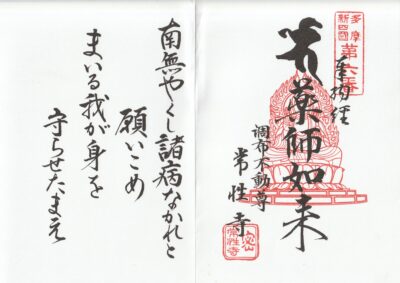 多摩
新四國
第六番
奉納経
薬師如来
調布不動尊
常性寺
常性寺
南無やくし諸病なかれと
願いこめ
まいる我が身を
守らせたまえ